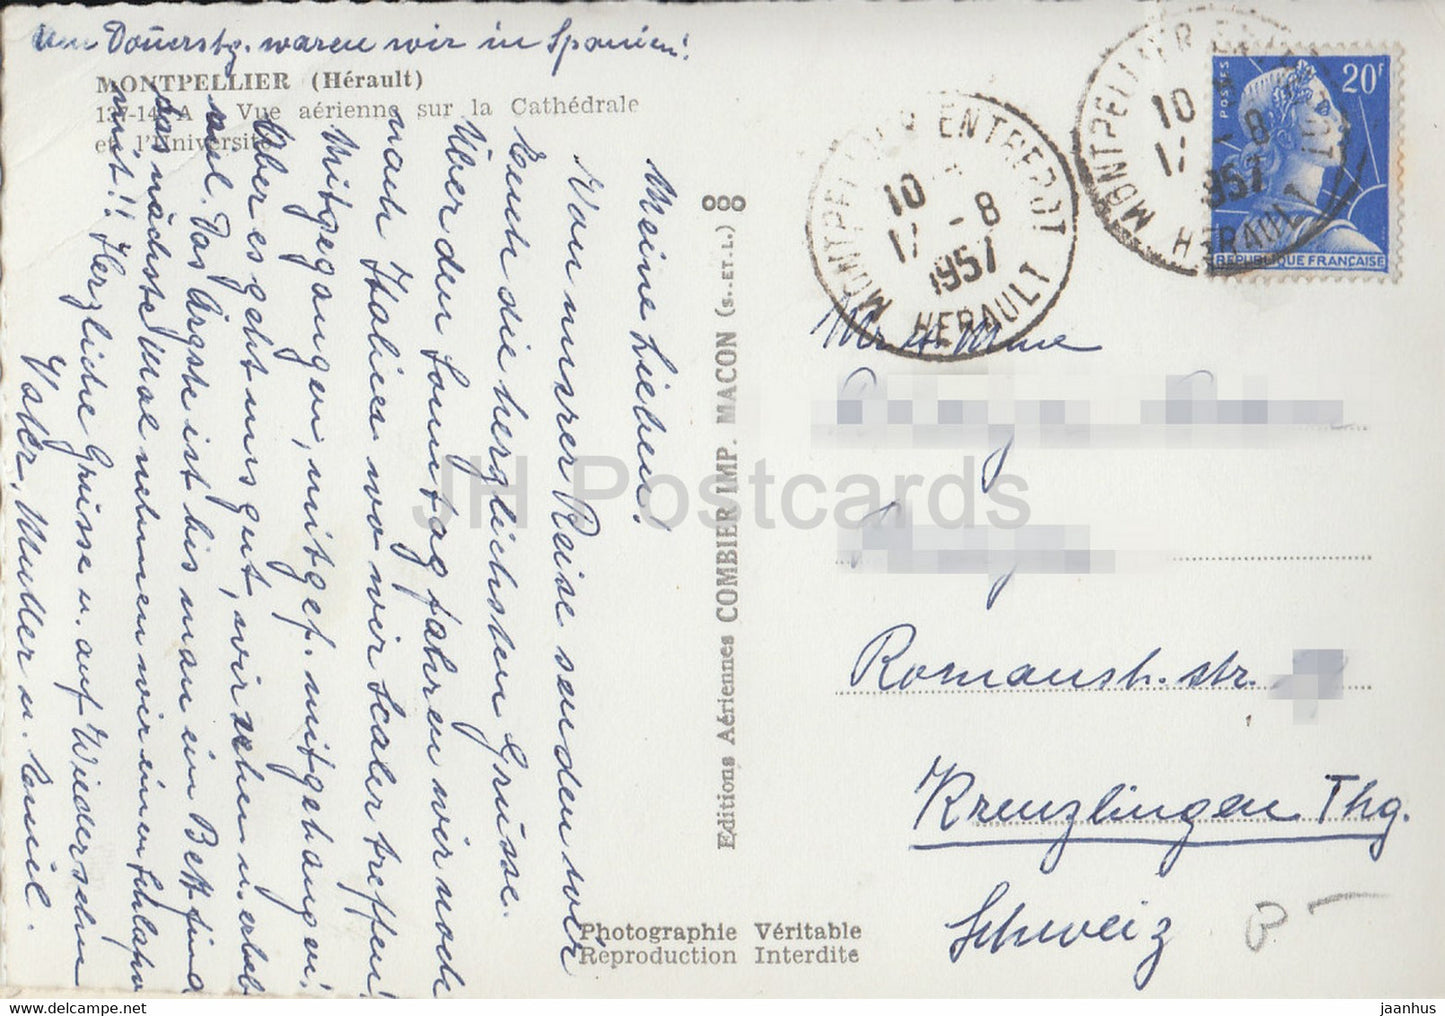 Am Donnerstg. waren wir in Spanien!
MONTPELLIER (Hérault)
137-14 A Vue aérienne sur la Cathédrale
et l'Université
Meine Lieben!
Von unsrer Reise senden wir
Euch die herzlichsten Grüsse.
Über den Sonntag fahren wir noch
nach Italien wo wir Scaler treffen!
Mitgegangen, mitgef. mitgehangen!
Aber es geht uns gut, wir sehen u. erleb
viel. Das Ärgste ist bis man ein Bett find
das nächste Mal nehmen wir einen Schlafw
mit!! Herzliche Grüsse u. auf Wiedersehn
Vater, Mutter u. Emil.
Editions Aériennes COMBIER IMP. MACON (S.-ET-L.)
Photographie Véritable
Reproduction Interdite
MONTPELLIER ENTREPOT
10
17 -8
1957
HERAULT
MONTPELLIER ENTREPOT
10
17 -8
1957
HERAULT
POSTES
20F
REPUBLIQUE FRANÇAISE
Mr et Mme
Romansh. str.
Kreuzlingen Thg.
Schweiz
JH Postcards
jaanhus @ Delcampe.net